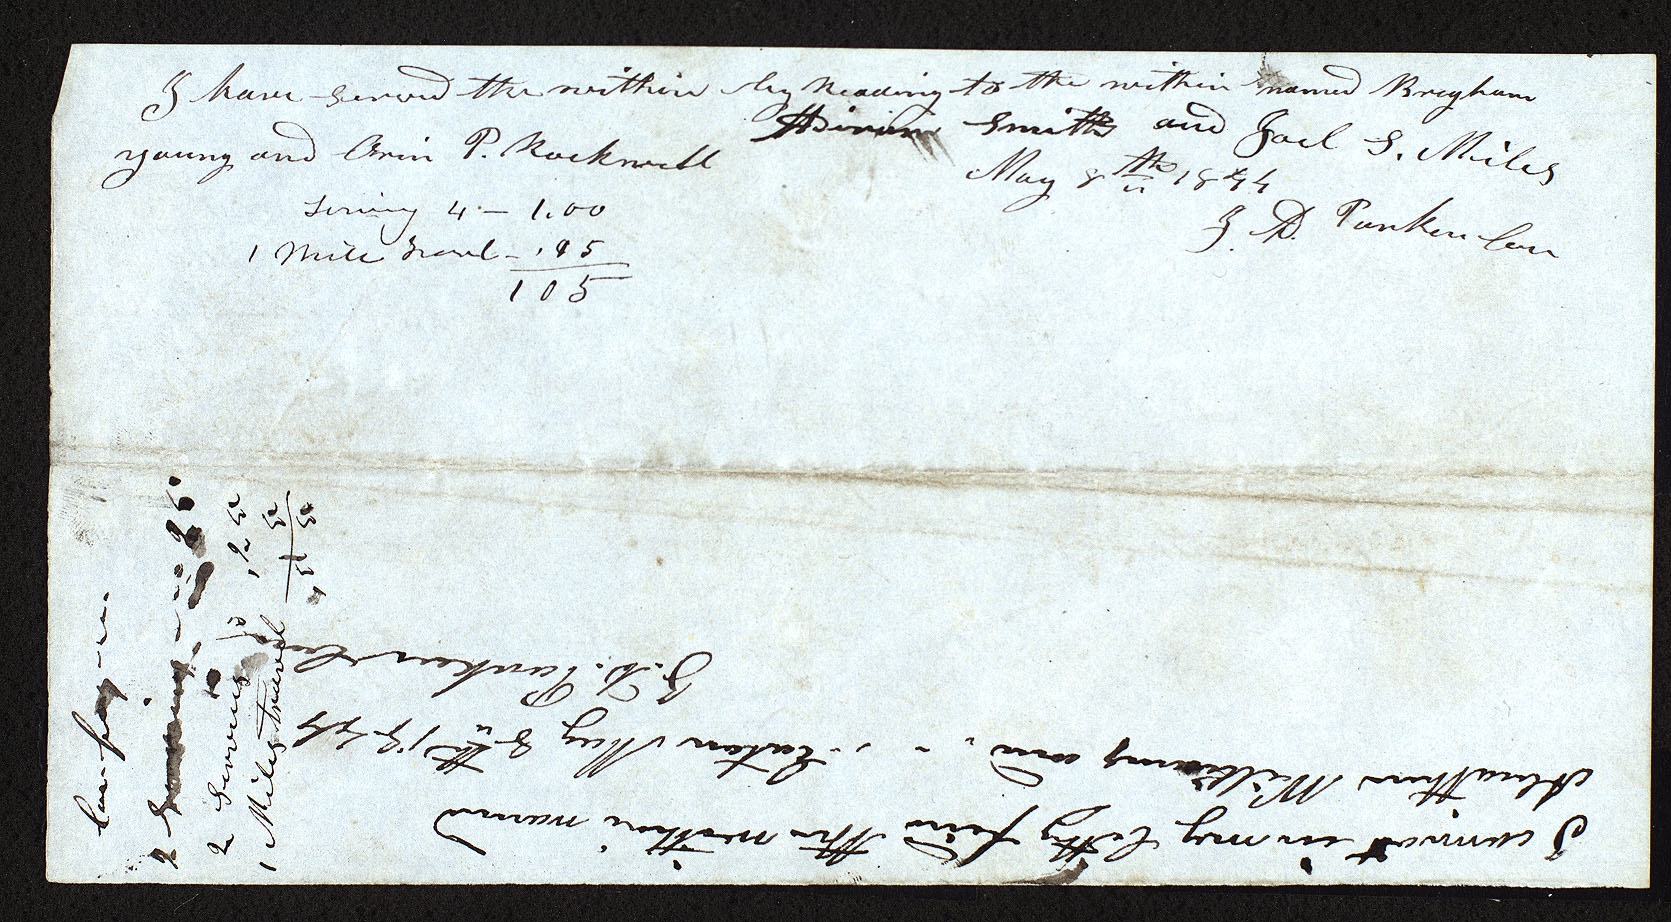 I have served the within by Reading to the within named Brigham
young and Orin P. Rockwell Hirum Smith and Joel S. Miles
May 8th 1844
J. D. Parker Con
Serving 4 – 1.00
1 Mile Travel – .05
105
I cannot in my Citty find the within named
Alanthus Williams and Eaton May 8th 1844
J. D. Parker Con
Con pay
2 Serving
2 Serving
1 Miles travel